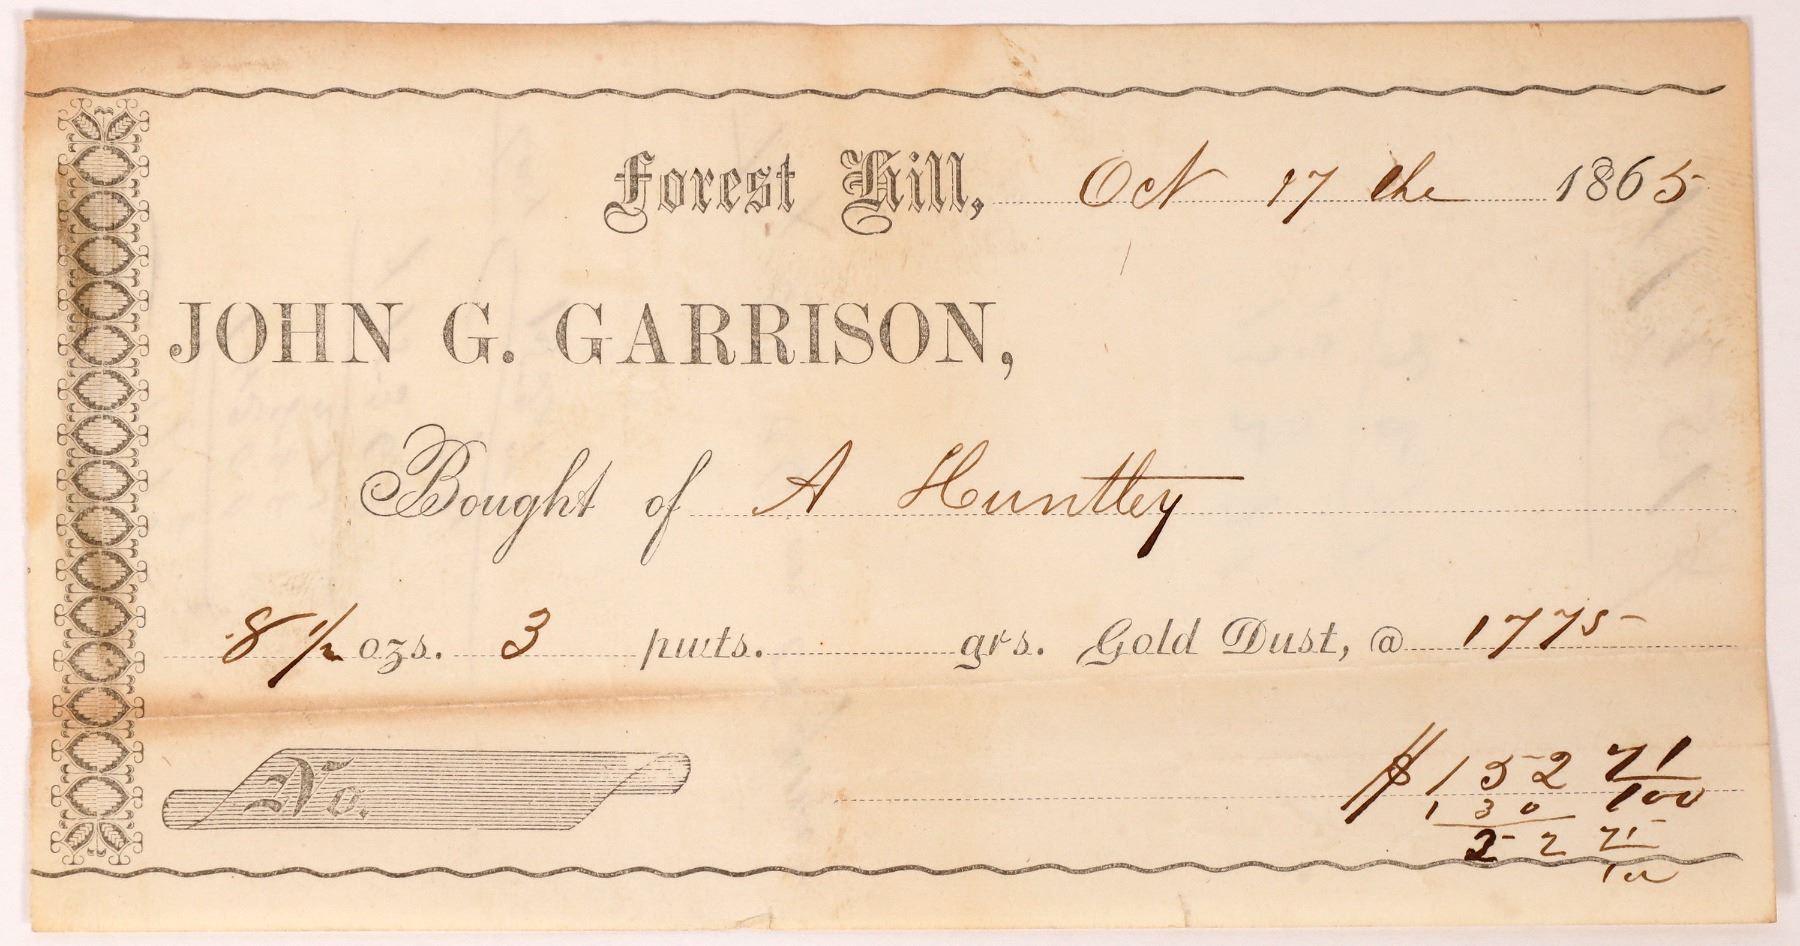 Forest Hill, Oct 17 the 1865
JOHN G. GARRISON,
Bought of A Huntley
8 1/2 ozs. 3 pwts. grs. Gold Dust, @ 1775
No.
$ 152 71/100
130